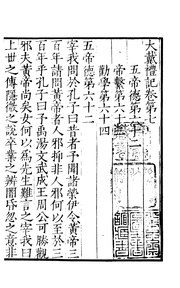 大戴禮記卷第七
五帝德第六十二
帝繫第六十三
勸學第六十四
五帝德第六十二
宰我問於孔子曰昔者予聞諸榮伊令黃帝三
百年請問黃帝者人邪抑非人邪何以至於三
百年乎孔子曰予禹湯文武成王周公可勝觀
邪夫黃帝尚矣女何以為先生難言之宰我曰
上世之傳隱微之說卒業之辨闇昏忽之意非